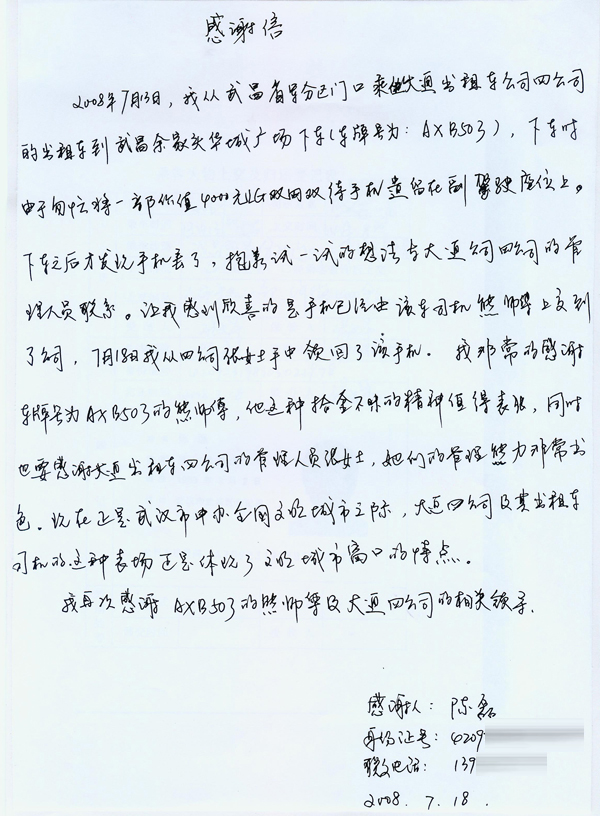 感谢信
2008年7月13日，我从武昌首义分区门口乘坐大通出租车公司四公司
的出租车到武昌余家头华城广场下车（车牌号为：AXB503），下车时
由于匆忙将一部价值4000元LG双网双待手机遗留在副驾驶座位上。
下车之后才发现手机丢了，抱着试一试的想法与大通公司四公司的管
理人员联系。让我感到欣喜的是手机已经由该车司机熊师傅上交到
了公司，7月18日我从四公司张女士手中领回了该手机。我非常的感谢
车牌号为AXB503的熊师傅，他这种拾金不昧的精神值得表扬，同时
也要感谢大通出租车四公司的管理人员张女士，她们的管理能力非常出
色。现在正是武汉市申办全国文明城市之际，大通四公司及其出租车
司机的这种表扬正是体现了文明城市窗口的特点。
我再次感谢AXB503的熊师傅及大通四公司的相关领导.
感谢人：陈磊
身份证号：4209
联系电话：139
2008.7.18.